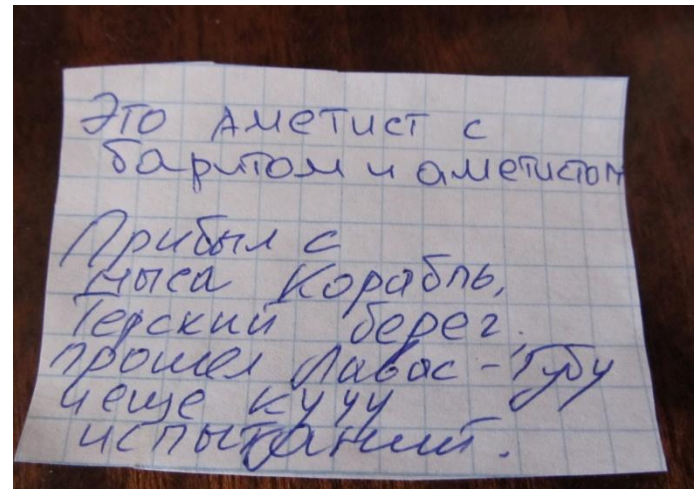 Это аметист с
баритом и аметистом
Прибыл с
мыса Корабль,
Терский берег.
прошел Лавас-Губу
и еще кучу
испытаний.